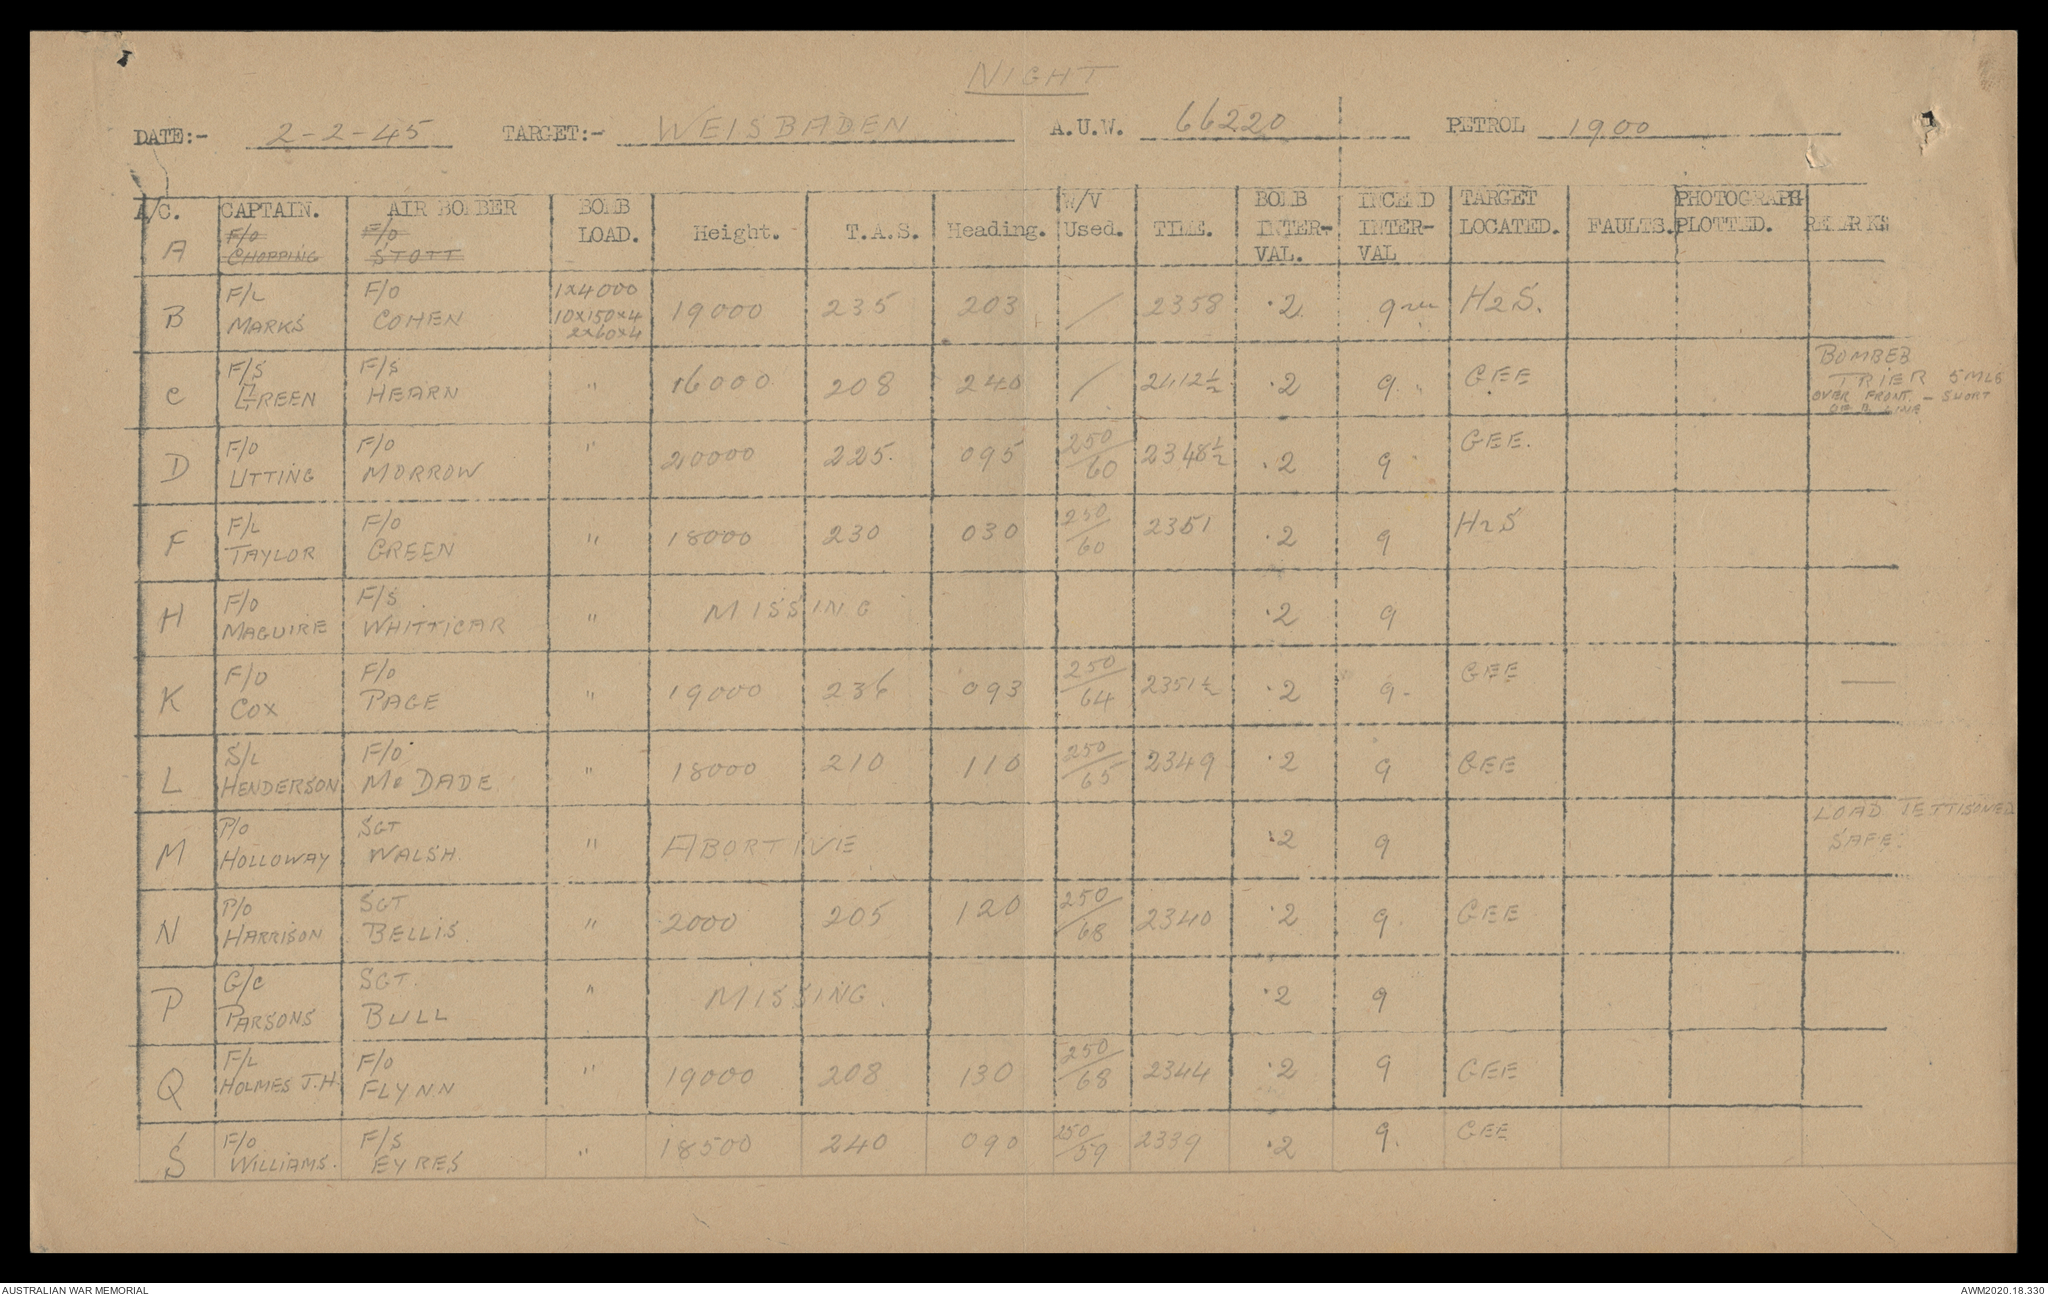 NIGHT
DATE:- 2-2-45 TARGET:- WEISBADEN A.U.W. 66220 PETROL 1900
A/C. CAPTAIN. AIR BOMBER BOMB LOAD. Height. T.A.S. Heading. W/V Used. TIME. BOMB INTER-VAL. INCEND INTER-VAL TARGET LOCATED. FAULTS. PHOTOGRAPH PLOTTED. REMARKS
A F/O CHOPPING F/O STOTT
B F/L MARKS F/O COHEN 1x4000 10x150x4 2x60x4 19000 235 203 / 2358 .2 9 H2S.
C F/S GREEN F/S HEARN " 16000 208 240 / 2412½ .2 9 " GEE BOMBED TRIER 5MLS OVER FRONT - SHORT OF B LINE
D F/O UTTING F/O MORROW " 20000 225. 095 250/60 2348½ .2 9 GEE.
F F/L TAYLOR F/O GREEN " 18000 230 030 250/60 2351 .2 9 H2S
H F/O MAGUIRE F/S WHITTICAR " MISSING .2 9
K F/O COX F/O PAGE " 19000 236 093 250/64 2351½ .2 9- GEE —
L S/L HENDERSON F/O McDADE " 18000 210 110 250/65 2349 .2 9 GEE
M P/O HOLLOWAY SGT WALSH. " ABORTIVE .2 9 LOAD JETTISONED SAFE.
N P/O HARRISON SGT BELLIS. " 2000 205 120 250/68 2340 .2 9. GEE
P G/C PARSONS SGT. BULL " MISSING. .2 9
Q F/L HOLMES J.H. F/O FLYNN " 19000 208 130 250/68 2344 .2 9 GEE
S F/O WILLIAMS. F/S EYRES " 18500 240 090 250/59 2339 .2 9. GEE
AUSTRALIAN WAR MEMORIAL
AWM2020.18.330